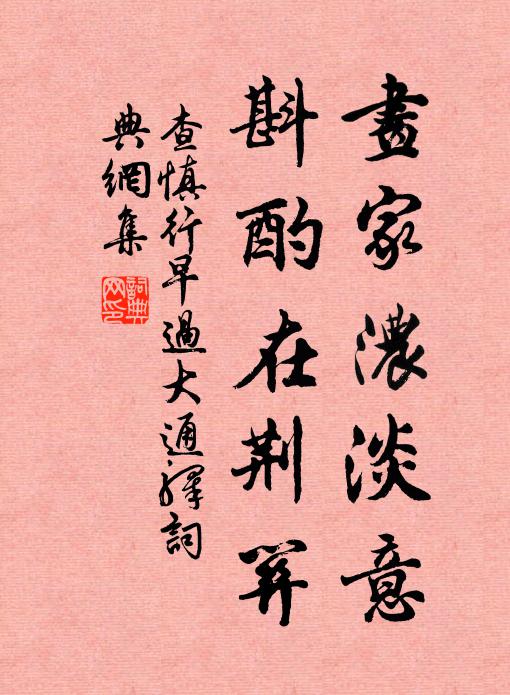 畫家濃淡意
斟酌在荆笄
查慎行早過大通驛詞
典網集
詞典
网印